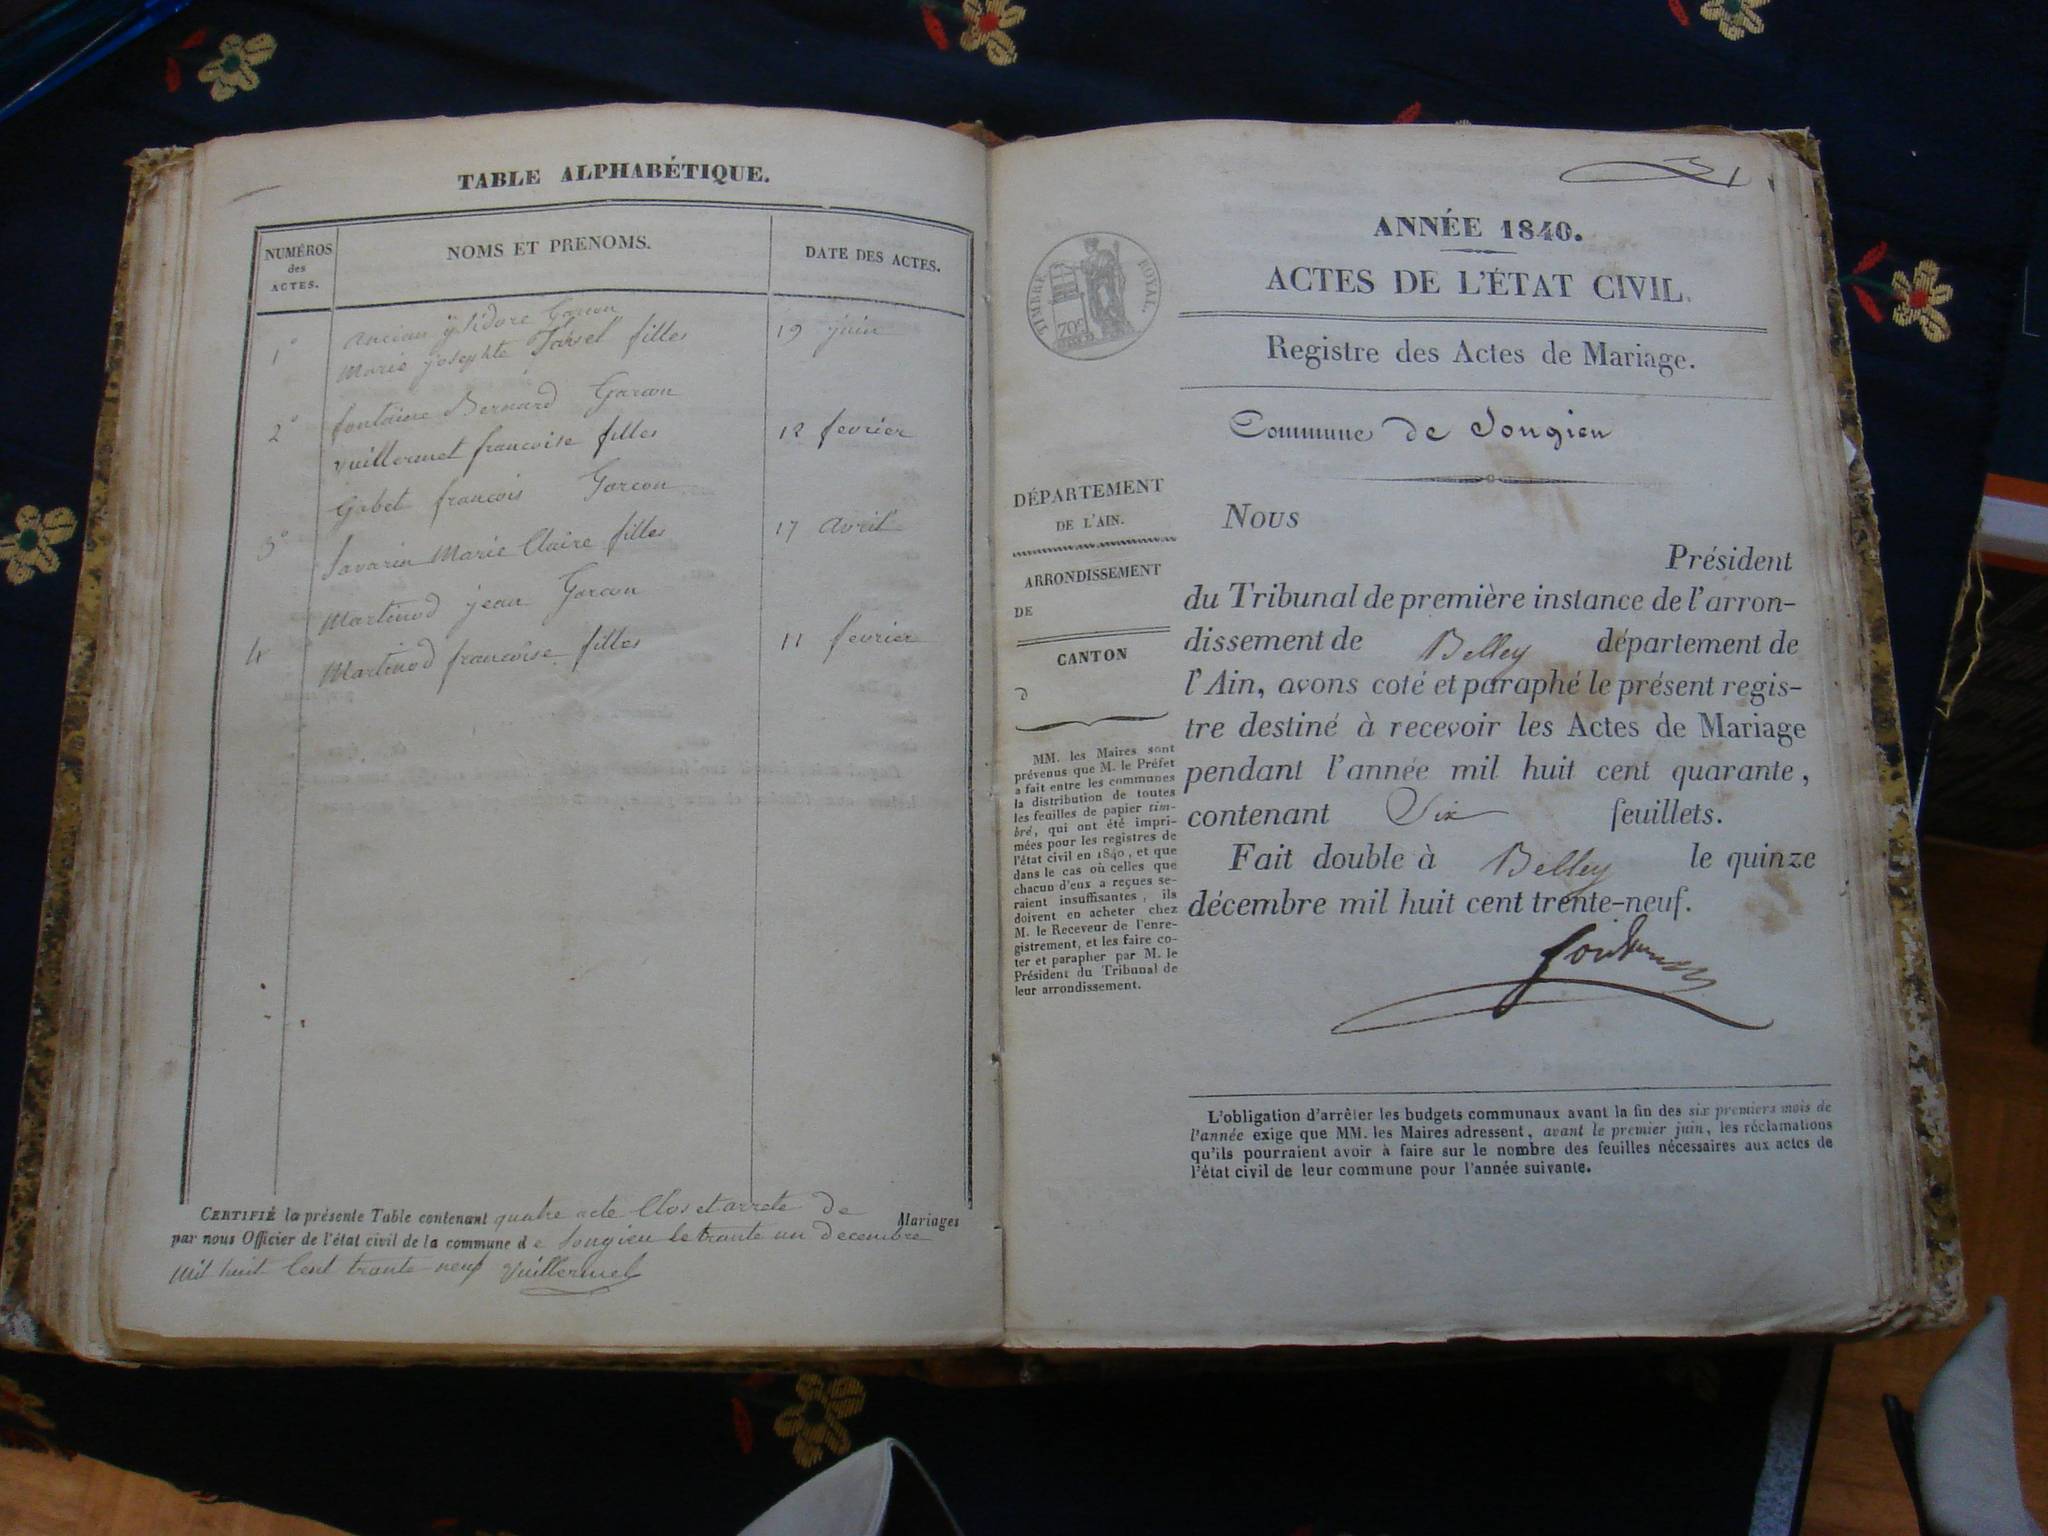 TABLE ALPHABÉTIQUE.
NUMÉROS
des
ACTES.
NOMS ET PRENOMS.
DATE DES ACTES.
1°
ancian ysidore Garcon
Marie josephte filles
19 juin
2°
fontaine Bernard Garcon
Vuillermet francoise filles
12 fevrier
3°
Gobet francois Garcon
Savarin Marie Claire filles
17 avril
4
Martinod jean Garcon
Martinod francoise filles
11 fevrier
CERTIFIÉ la présente Table contenant quatre acte Clos et arrete de Mariages
par nous Officier de l'état civil de la commune de Songieu le trante un decembre
mil huit Cent trante neuf Vuillermet
31
TIMBRE ROYAL.
70c
ANNÉE 1840.
ACTES DE L'ÉTAT CIVIL.
Registre des Actes de Mariage.
Commune de Songieu
DÉPARTEMENT
DE L'AIN.
ARRONDISSEMENT
DE
CANTON
d
MM. les Maires sont
prévenus que M. le Préfet
a fait entre les communes
la distribution de toutes
les feuilles de papier tim-
bré, qui ont été impri-
mées pour les registres de
l'état civil en 1840, et que
dans le cas où celles que
chacun d'eux a reçues se-
raient insuffisantes, ils
doivent en acheter chez
M. le Receveur de l'enre-
gistrement, et les faire co-
ter et parapher par M. le
Président du Tribunal de
leur arrondissement.
Nous
Président
du Tribunal de première instance de l'arron-
dissement de Belley département de
l'Ain, avons coté et paraphé le présent regis-
tre destiné à recevoir les Actes de Mariage
pendant l'année mil huit cent quarante,
contenant Six feuillets.
Fait double à Belley le quinze
décembre mil huit cent trente-neuf.
L'obligation d'arrêter les budgets communaux avant la fin des six premiers mois de
l'année exige que MM. les Maires adressent, avant le premier juin, les réclamations
qu'ils pourraient avoir à faire sur le nombre des feuilles nécessaires aux actes de
l'état civil de leur commune pour l'année suivante.